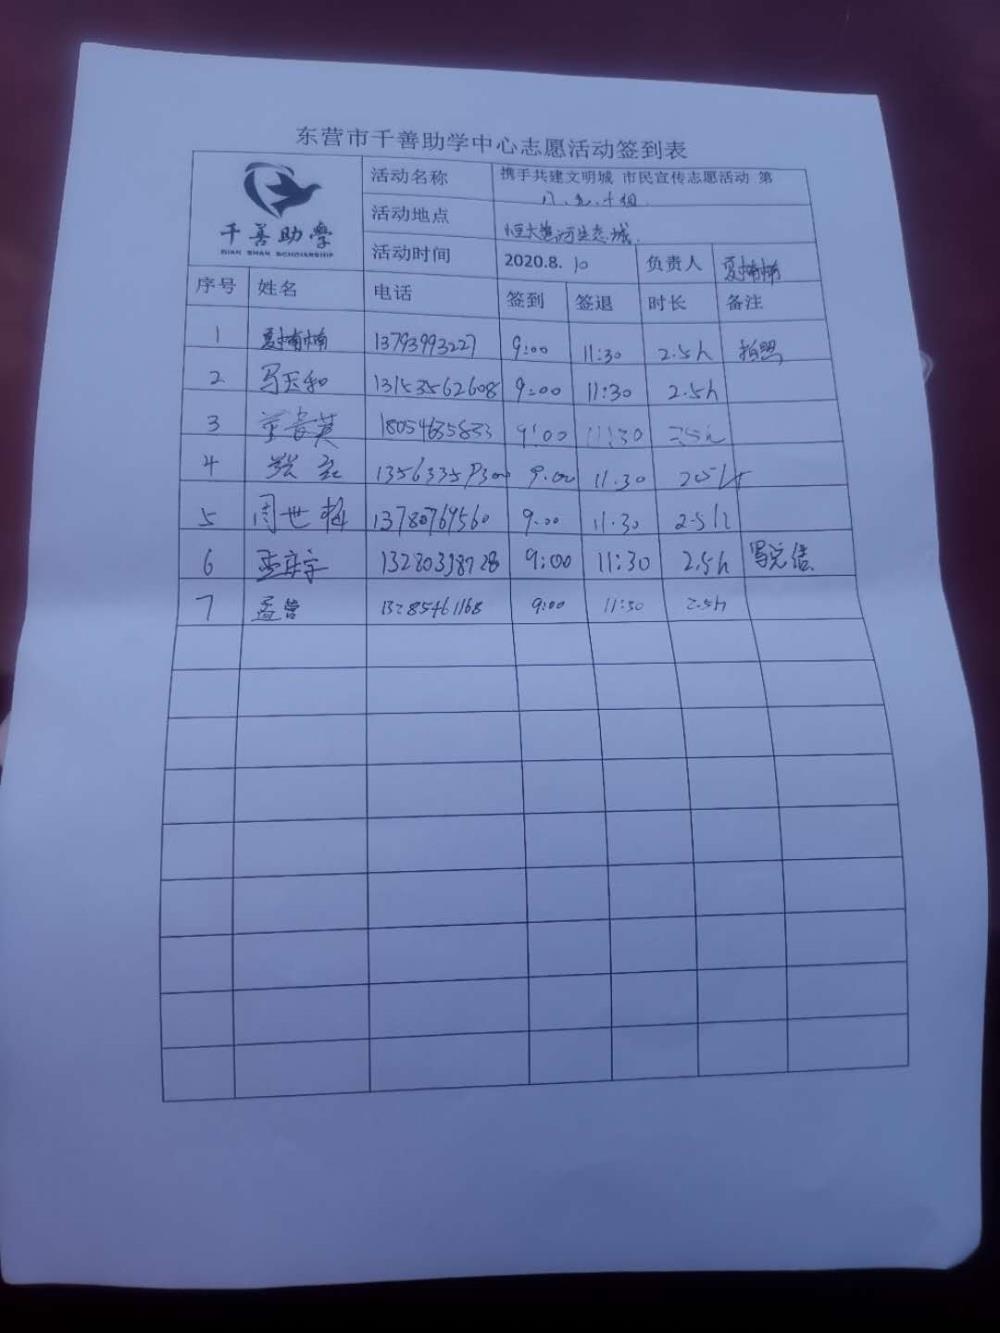 东营市千善助学中心志愿活动签到表
千善助学
QIAN SHAN SCHOLARSHIP
活动名称 携手共建文明城 市民宣传志愿活动 第
八、九、十组
活动地点 恒大黄河生态城
活动时间 2020.8.10 负责人 夏楠楠
序号 姓名 电话 签到 签退 时长 备注
1 夏楠楠 13793993227 9:00 11:30 2.5h 拍照
2 13153562608 9:00 11:30 2.5h
3 18054635833 9:00 11:30 2.5h
4 9.00 11.30 2.5h
5 周世梅 13780769560 9.00 11.30 2.5h
6 孟庆宇 13280398728 9:00 11:30 2.5h 写总信
7 孟营 13285461168 9:00 11:30 2.5h